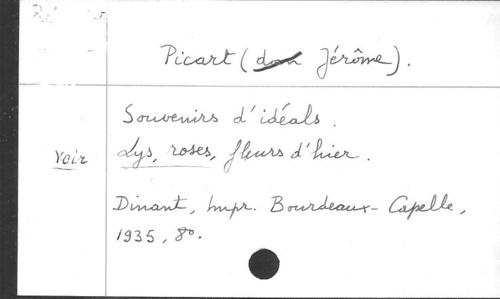 Picart (dom Jérôme).
Souvenirs d'idéals.
Voir Lys, roses, fleurs d'hier.
Dinant, Impr. Bourdeaux-Capelle,
1935, 8º.